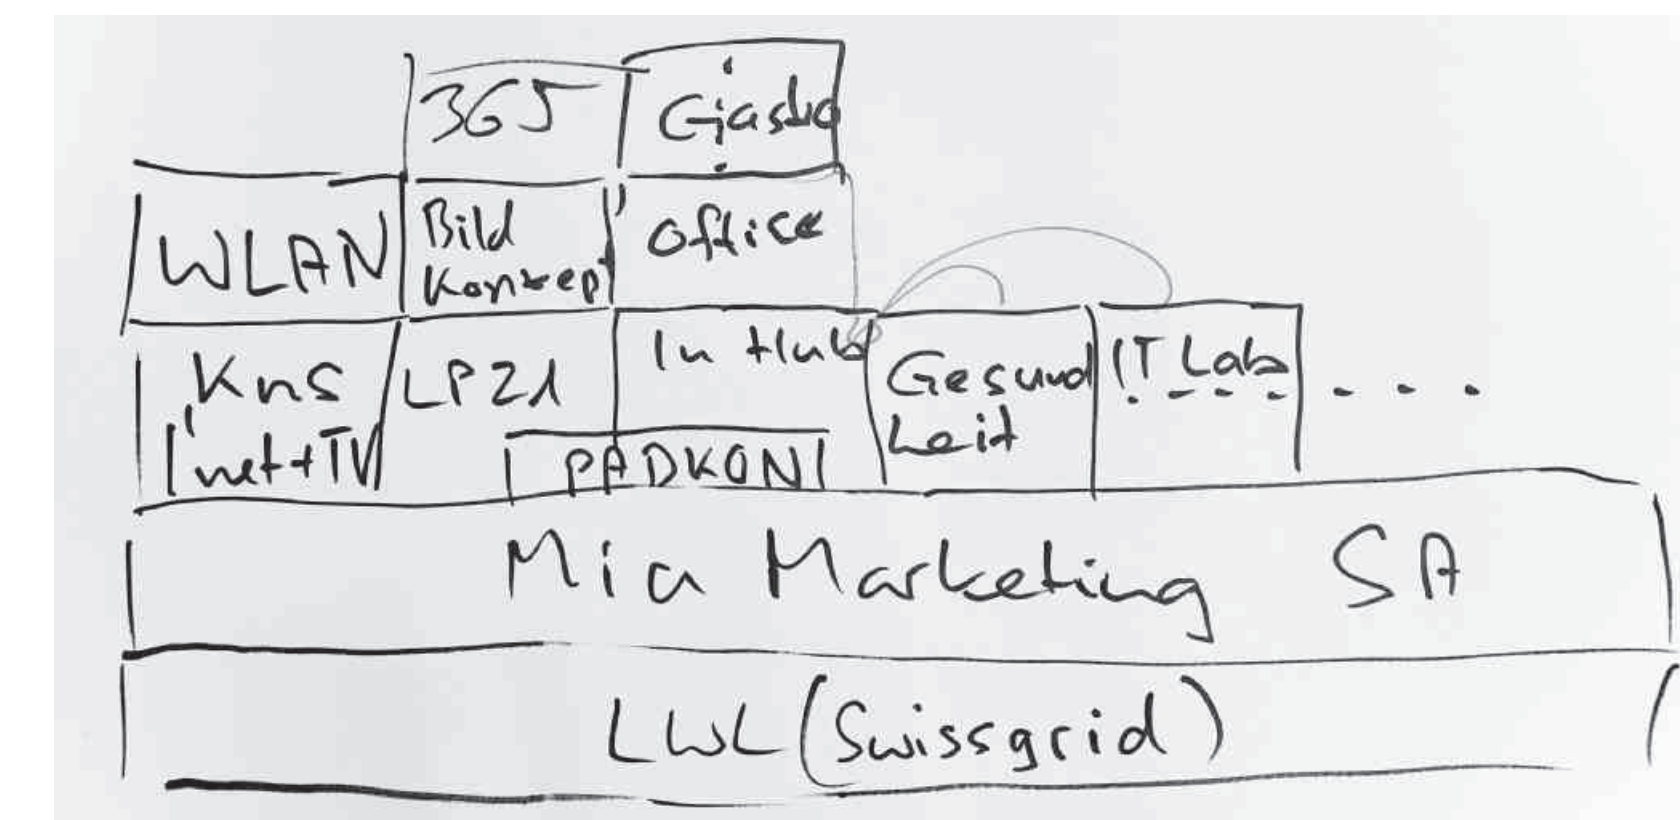 365
WLAN
Bild
Konzept
Office
Kns
net+TV
LP21
In Hub
PADKON
Gesund
heit
IT Lab
....
Mia Marketing SA
LWL (Swissgrid)